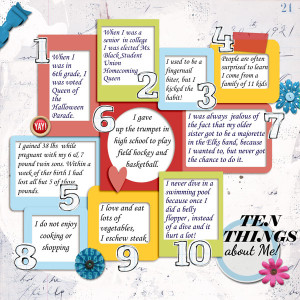 21
1
When I
was in
6th grade, I
was voted
Queen of
the
Halloween
Parade.
When I was a
senior in college
I was elected Ms.
Black Student
Union
Homecoming
Queen
2
I used to be a
fingernail
biter, but I
kicked the
habit!
3
4
People are often
surprised to learn
I come from a
family of 11 kids
YAY!
I gained 38 lbs. while
pregnant with my 6 & 7
pound twin sons. Within a
week of their birth I had
lost all but 5 of those
pounds.
5
6
I gave
up the trumpet in
high school to play
field hockey and
basketball.
I was always jealous of
the fact that my older
sister got to be a majorette
in the Elks band, because
I wanted to, but never got
the chance to do it.
7
I do not enjoy
cooking or
shopping
8
I love and eat
lots of
vegetables,
I eschew steak
9
I never dive in a
swimming pool
because once I
did a belly
flopper, instead
of a dive and it
hurt a lot!
10
TEN
THINGS
about Me!